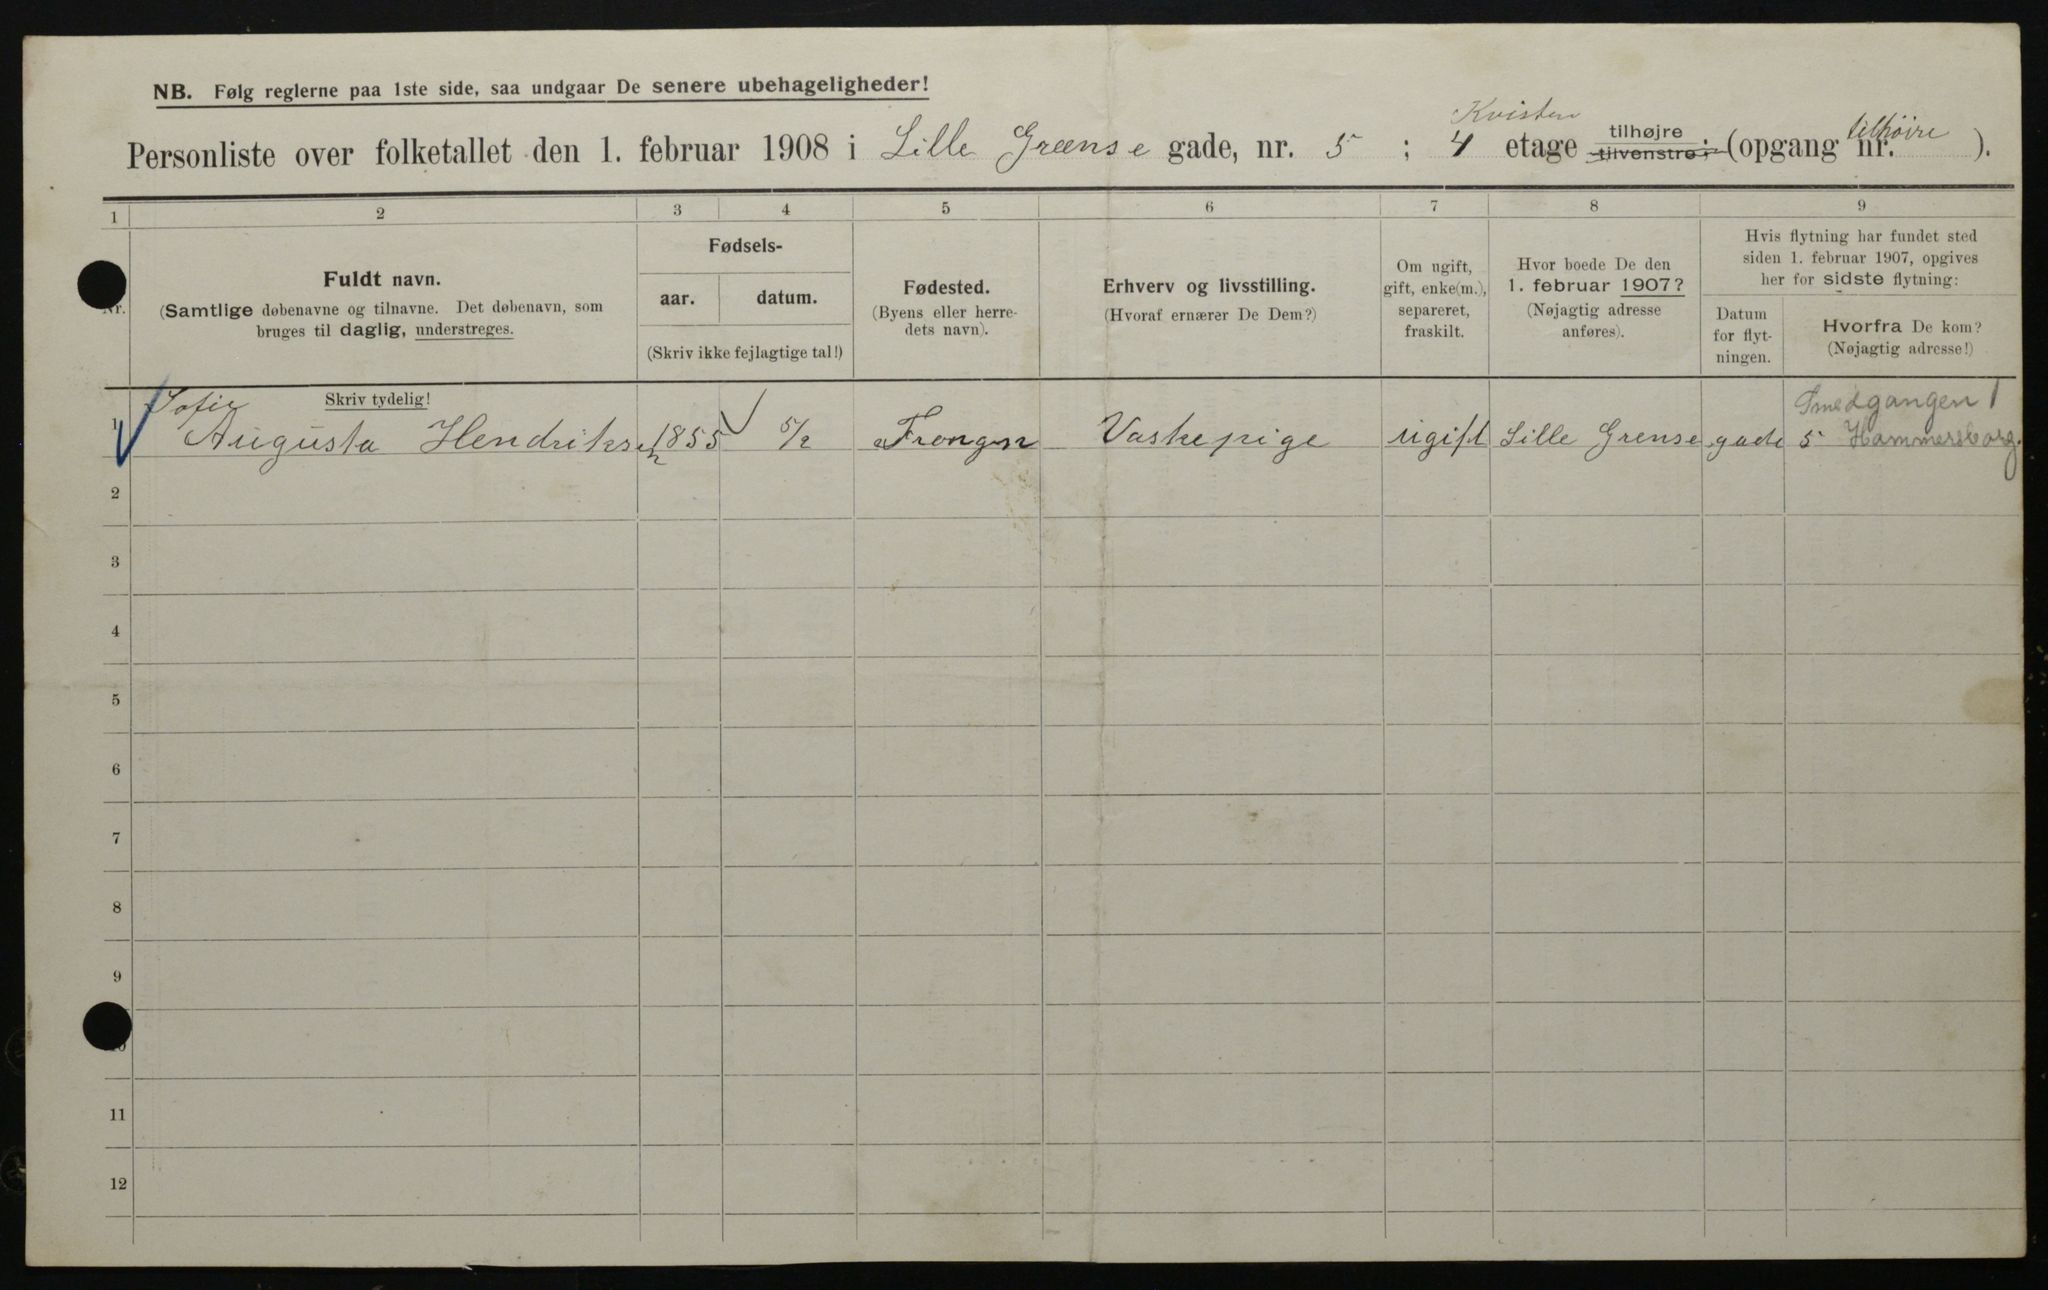 NB. Følg reglerne paa 1ste side, saa undgaar De senere ubehageligheder!
Kvisten
Personliste over folketallet den 1. februar 1908 i Lille Grænse gade, nr. 5 ; 4 etage tilhøjre tilvenstre; (opgang nr. tilhøire ).
1 2 3 4 5 6 7 8 9
Nr.
Fuldt navn.
(Samtlige døbenavne og tilnavne. Det døbenavn, som
bruges til daglig, understreges.
Fødsels-
aar. datum.
(Skriv ikke fejlagtige tal!)
Fødested.
(Byens eller herre-
dets navn).
Erhverv og livsstilling.
(Hvoraf ernærer De Dem?)
Om ugift,
gift, enke(m.),
separeret,
fraskilt.
Hvor boede De den
1. februar 1907?
(Nøjagtig adresse
anføres).
Hvis flytning har fundet sted
siden 1. februar 1907, opgives
her for sidste flytning:
Datum
for flyt-
ningen.
Hvorfra De kom?
(Nøjagtig adresse!)
Skriv tydelig!
Sofie Smedgangen 1
1 Augusta Hendriksen 1855 5/2 Frongn Vaskepige ugift Lille Grense gade 5 Hammersborg.
2
3
4
5
6
7
8
9
10
11
12